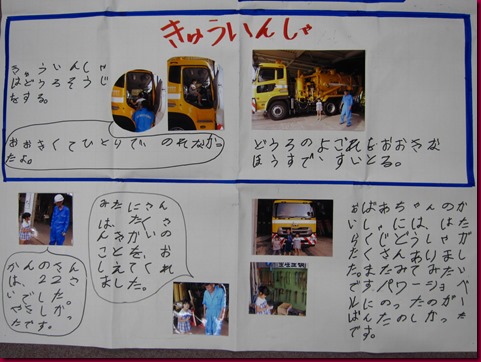 きゅういんしゃ
きゅういんしゃ
はどうろそうじ
をする。
おおきくてひとりでのれなか。
たよ。
どうろのよごれをおおきな
ほうすですいとる。
かんのさん
は、22さ
いでした。
やさしかっ
たです。
みたにさん
は、たくさ
んきかいの
ことを、お
しえてくれ
ました。
おばあちゃんのか
いしゃには、はた
らくじどうしゃが
たくさんありまし
た。またみてみたい
ですパワーショベ
ルにのったのがー
ばんたのしかった
です。